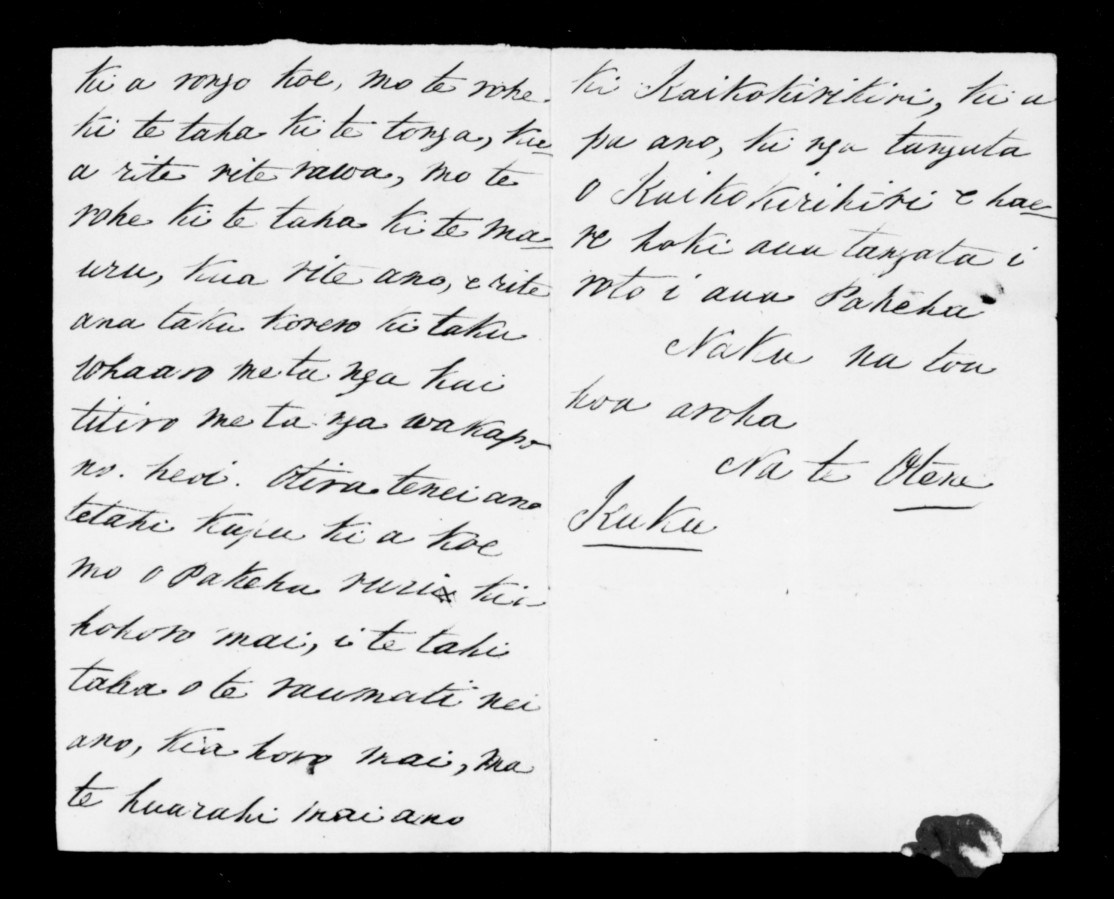 ki a rongo koe, mo te rohe
ki te taha ki te tonga, kie
a rite rite rawa, mo te
rohe ki te taha ki te ma-
uru, kua rite ano, e rite
ana taku korero ki taku
whaaro me ta nga kai
titiro me ta nga wakapo-
no. heoi. Otira tenei ano
tetahi kupu ki a koe
mo o Pakeha ruri kii
hohoro mai, i te tahi
taha o te raumati nei
ano, kia horo mai, ma
te huarahi mai ano
ki Kaikokirikiri, kia
pa ano, ki nga tangata
o Kaikokirikiri e hae-
re hoki aua tangata i
roto i aua Pakeha
Naku na tou
hoa aroha
Na te Otene
Kuku